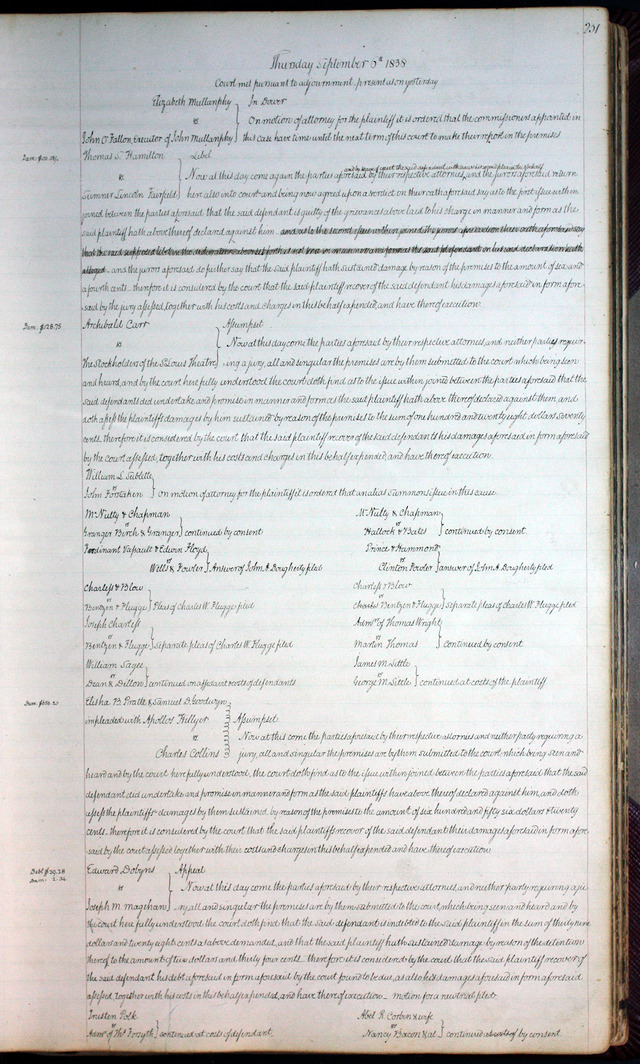 231
Thursday September 6th 1838
Court met pursuant to adjournment, present as on yesterday
Elizabeth Mullanphy } In Dower
vs On motion of attorney for the plaintiff it is ordered that the commissioners appointed in
John O'Fallon, Executor of John Mullanphy this case have time until the next term of this court to make their report in the premises
Thomas T. Hamilton } Libel
vs Now at this day come again the parties aforesaid by their respective attornies, and the jurors aforesaid return
Sumner Lincoln Fairfield here also into court and being now agreed upon a verdict on their oath aforesaid say as to the first issue within
joined between the parties aforesaid that the said defendant is guilty of the grievances above laid to his charge in manner and form as the
said plaintiff hath above thereof declared against him.
alleged. and the jurors aforesaid do further say that the said plaintiff hath sustained damage by reason of the premises to the amount of six and
a fourth cents. therefore it is considered by the court that the said plaintiff recover of the said defendant his damages aforesaid in form afore-
said by the jury assessed, together with his costs and charges in this behalf expended, and have thereof execution.
Dam. $128.75
Archibald Carr } Assumpsit
vs Now at this day come the parties aforesaid by their respective attornies, and neither parties requir-
The Stockholders of the St Louis Theatre ing a jury, all and singular the premises are by them submitted to the court which being seen
and heard, and by the court here fully understood the court doth find as to the issue within joined between the parties aforesaid that the
said defendants did undertake and promise in manner and form as the said plaintiff hath above thereof declared against them, and
doth assess the plaintiffs damages by him sustained by reason of the premises to the sum of one hundred and twenty eight dollars seventy
cents. therefore it is considered by the court that the said plaintiff recover of the said defendants his damages aforesaid in form aforesaid
by the court assessed, together with his costs and charges in this behalf expended, and have thereof execution.
William L. Sublette
vs
John } On motion of attorney for the plaintiff it is ordered that an alias Summons issue in this cause.
McNulty & Chapman
vs
Granger Birch & Granger } continued by consent
McNulty & Chapman
vs
Hallock & Bates } continued by consent.
Ferdinant Vassault & Edwin Floyd
vs
Wells & Fowler } Answer of John A. Dougherty filed
Prince & Hammond
vs
Clinton Fowler } answer of John A Dougherty filed
Charless & Blow
vs
Bentzen & Flugge } Pleas of Charles W. Flugge filed
Charless & Blow
vs
Charles Bentzen & Flugge } Separate pleas of Charles W. Flugge filed
Joseph Charless
vs
Bentzen & Flugge } Separate pleas of Charles W. Flugge filed
Admr of Thomas Wright
vs
Martin Thomas } continued by consent
William Sagee
vs
Dean & Dillon } continued on affidavit & costs of defendants
James M. Little
vs
George M. Little } continued at costs of the plaintiff
Elisha B. Pratte & Samuel D. Goodwyn
impleaded with Apollos Hillyer } Assumpsit
vs Now at this come the parties aforesaid by their respective attornies and neither party requiring a
Charles Collins jury, all and singular the premises are by them submitted to the court which being seen and
heard and by the court here fully understood, the court doth find as to the issue within joined between the parties aforesaid that the said
defendant did undertake and promise in manner and form as the said plaintiffs have above thereof declared against him, and doth
assess the plaintiffs damages by them sustained by reason of the premises to the amount of six hundred and fifty six dollars & twenty
cents. therefore it is considered by the court that the said plaintiffs recover of the said defendant their damages aforesaid in form afore-
said by the court assessed together with their costs and charges in this behalf expended and have thereof execution
Debt $39.28
Dam. 2.34
Edward Dobyns } Appeal
vs Now at this day come the parties aforesaid by their respective attornies, and neither party requiring a ju-
Joseph M. Magehan ry, all and singular the premises are by them submitted to the court, which being seen and heard and by
the court here fully understood: the court doth find that the said defendant is indebted to the said plaintiff in the sum of thirty nine
dollars and twenty eight cents as above demanded, and that the said plaintiff hath sustained damage by reason of the detention
thereof to the amount of two dollars and thirty four cents. therefore it is considered by the court that the said plaintiff recover of
the said defendant his debt aforesaid in form aforesaid by the court found to be due, as also his damages aforesaid in form aforesaid
assessed, together with his costs in this behalf expended, and have thereof execution - motion for a new trial filed
Trusten Polk
vs
Admr of Thos Forsyth } continued at costs of defendant
Abel R. Corbin & wife
vs
Nancy Bacon & al } continued by consent